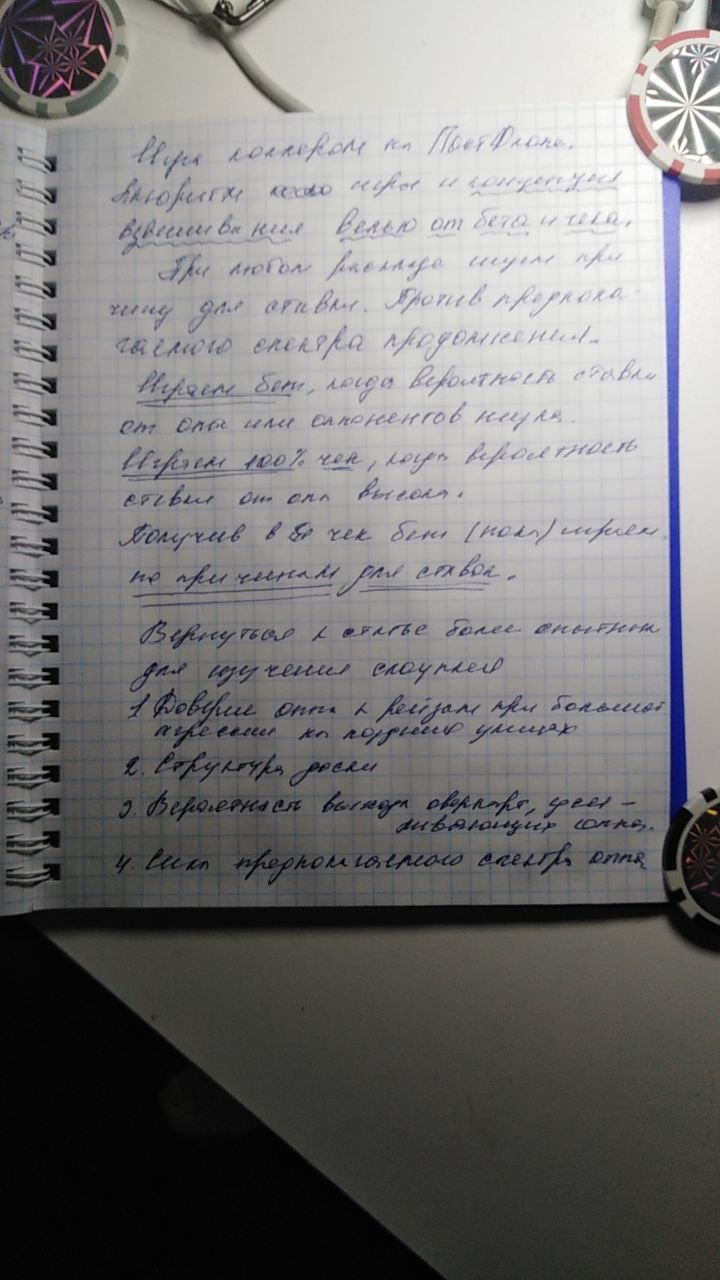 Игра коллером на ПостФлопе.
Алгоритм игры и концепция
взвешивания велью от бета и чека.
При любом раскладе ищем при
чину для ставки. Против предпола-
гаемого спектра продолжения.
Играем бет, когда вероятность ставки
от опа или оппонентов низка.
Играем 100% чек, когда вероятность
ставки от опа высока.
Получив в чек бет (поля) играем
по причинам для ставок.
Вернуться к статье более опытным
для изучения слоуплея
1 Доверие оппа к рейзам при большой
агрессии на поздних улицах
2. Структура доски
3. Вероятность выхода оверкарт,
4. Сила предполагаемого спектра оппа